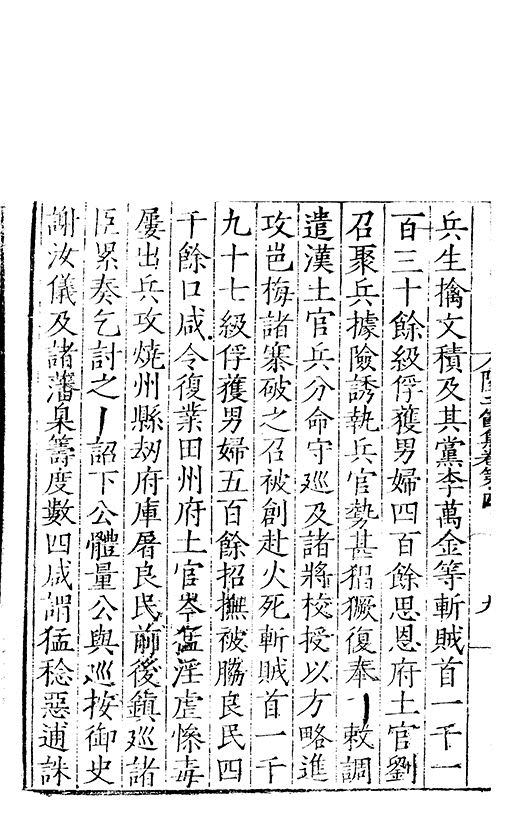 兵生擒文積及其黨李萬金等斬賊首一千一
百三十餘級俘獲男婦四百餘思恩府土官劉
召聚兵據險誘執兵官勢甚猖獗復奉敕調
遣漢土官兵分命守巡及諸將校授以方略進
攻邑梅諸寨破之召被創赴火死斬賊首一千
九十七級俘獲男婦五百餘招撫被脇良民四
千餘口咸令復業田州府土官岑猛淫虐慘毒
屢出兵攻燒州縣刼府庫屠良民前後鎮巡諸
臣累奏乞討之詔下公體量公與巡按御史
謝汝儀及諸藩臬籌度數四咸謂猛稔惡逋誅
卷第四
九